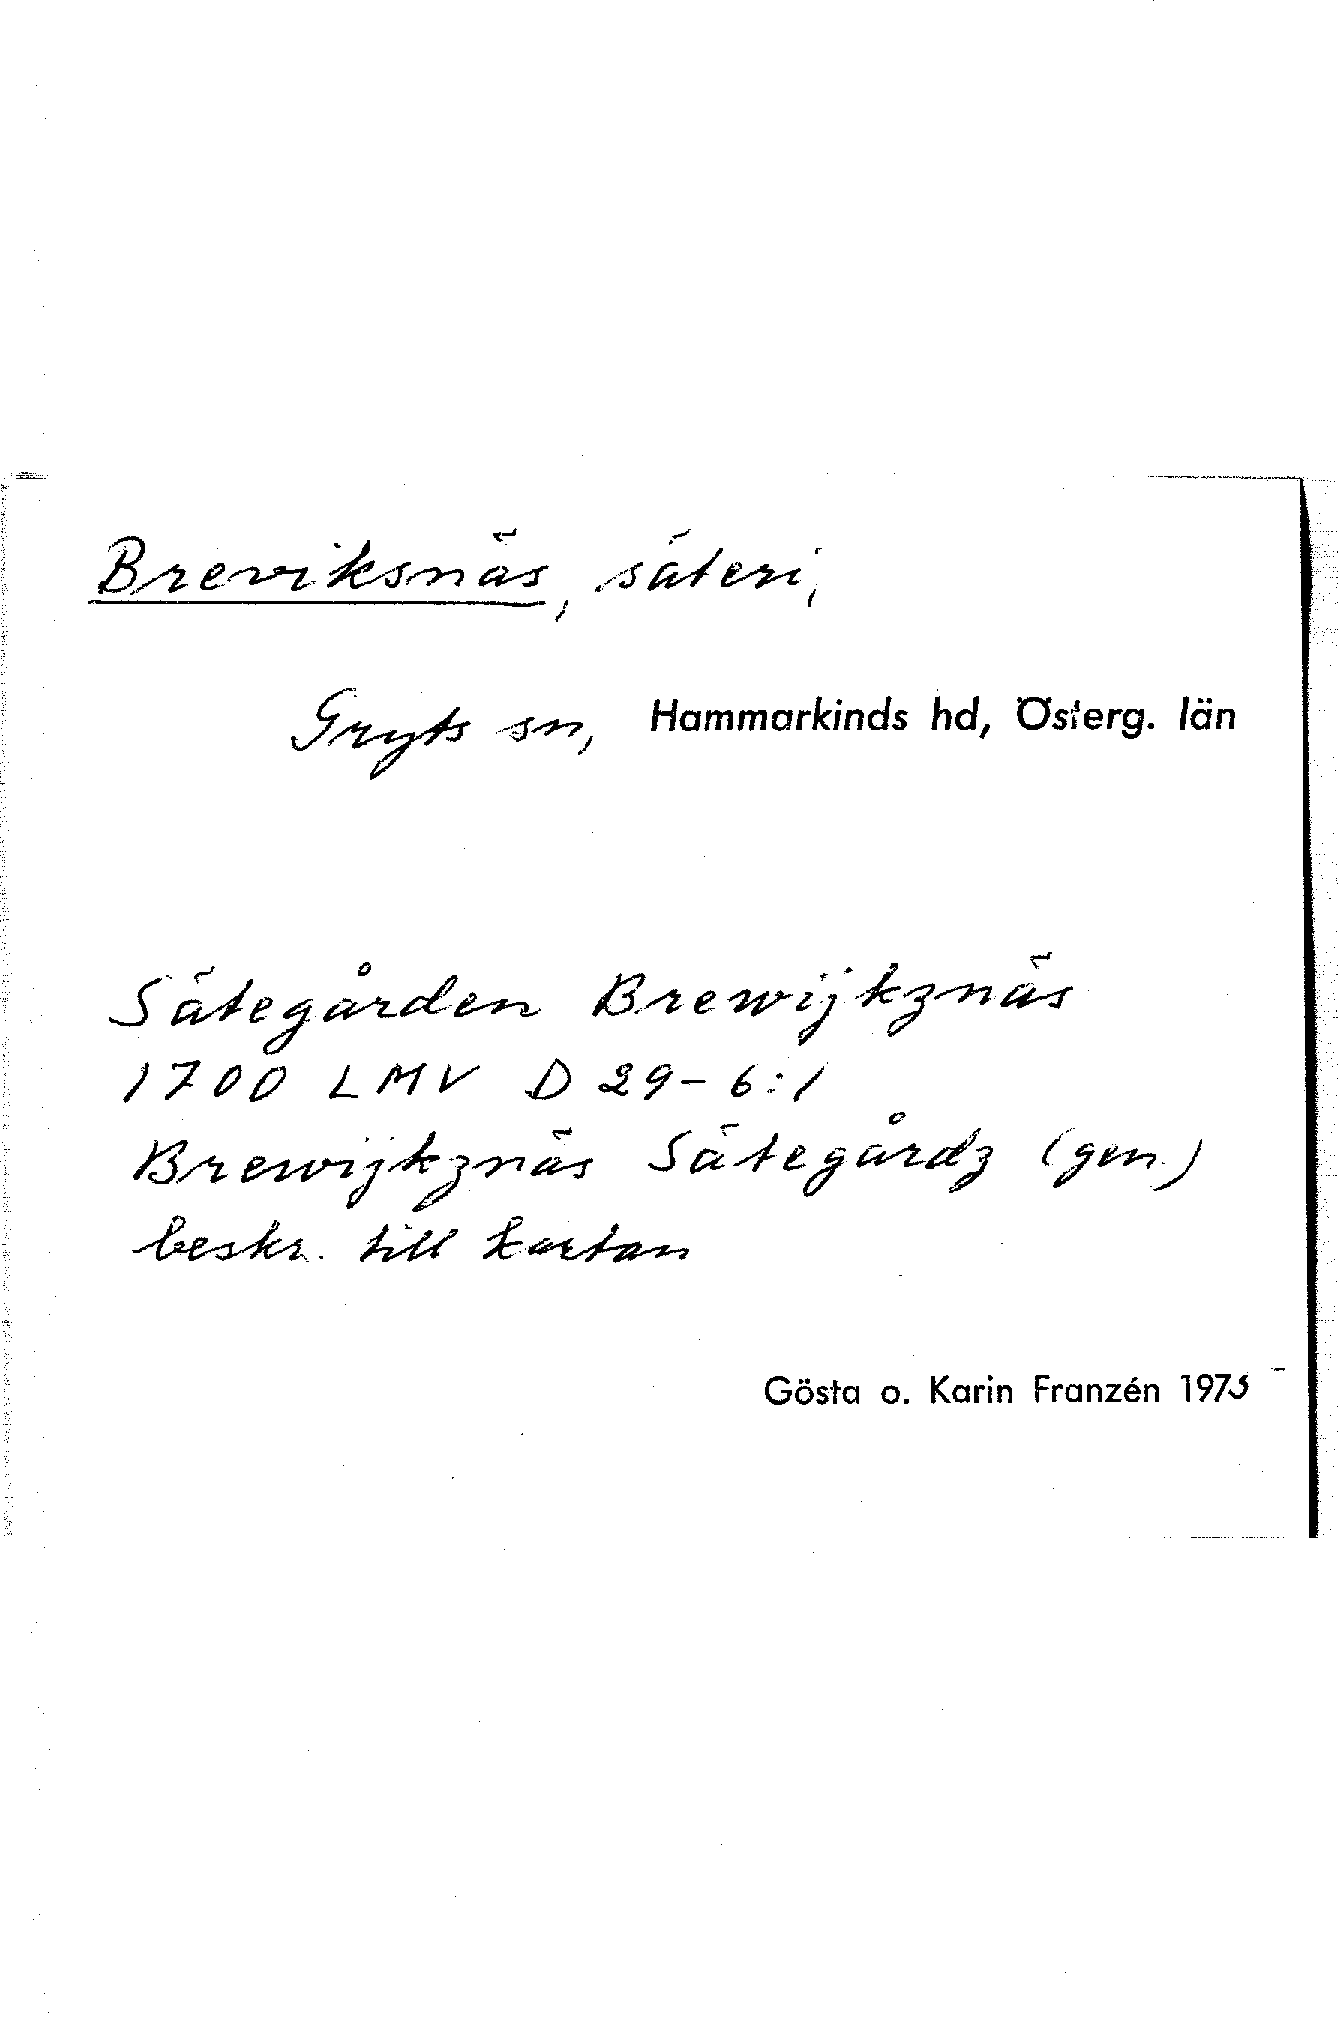 Breviksnäs, säteri,
Gryts sn, Hammarkinds hd, Österg. län
Sätegården Brewijkznäs
1700 LMV D 29-6:1
Brewijkznäs Sätegårdz (gen.)
beskr. till kartan
Gösta o. Karin Franzén 1975